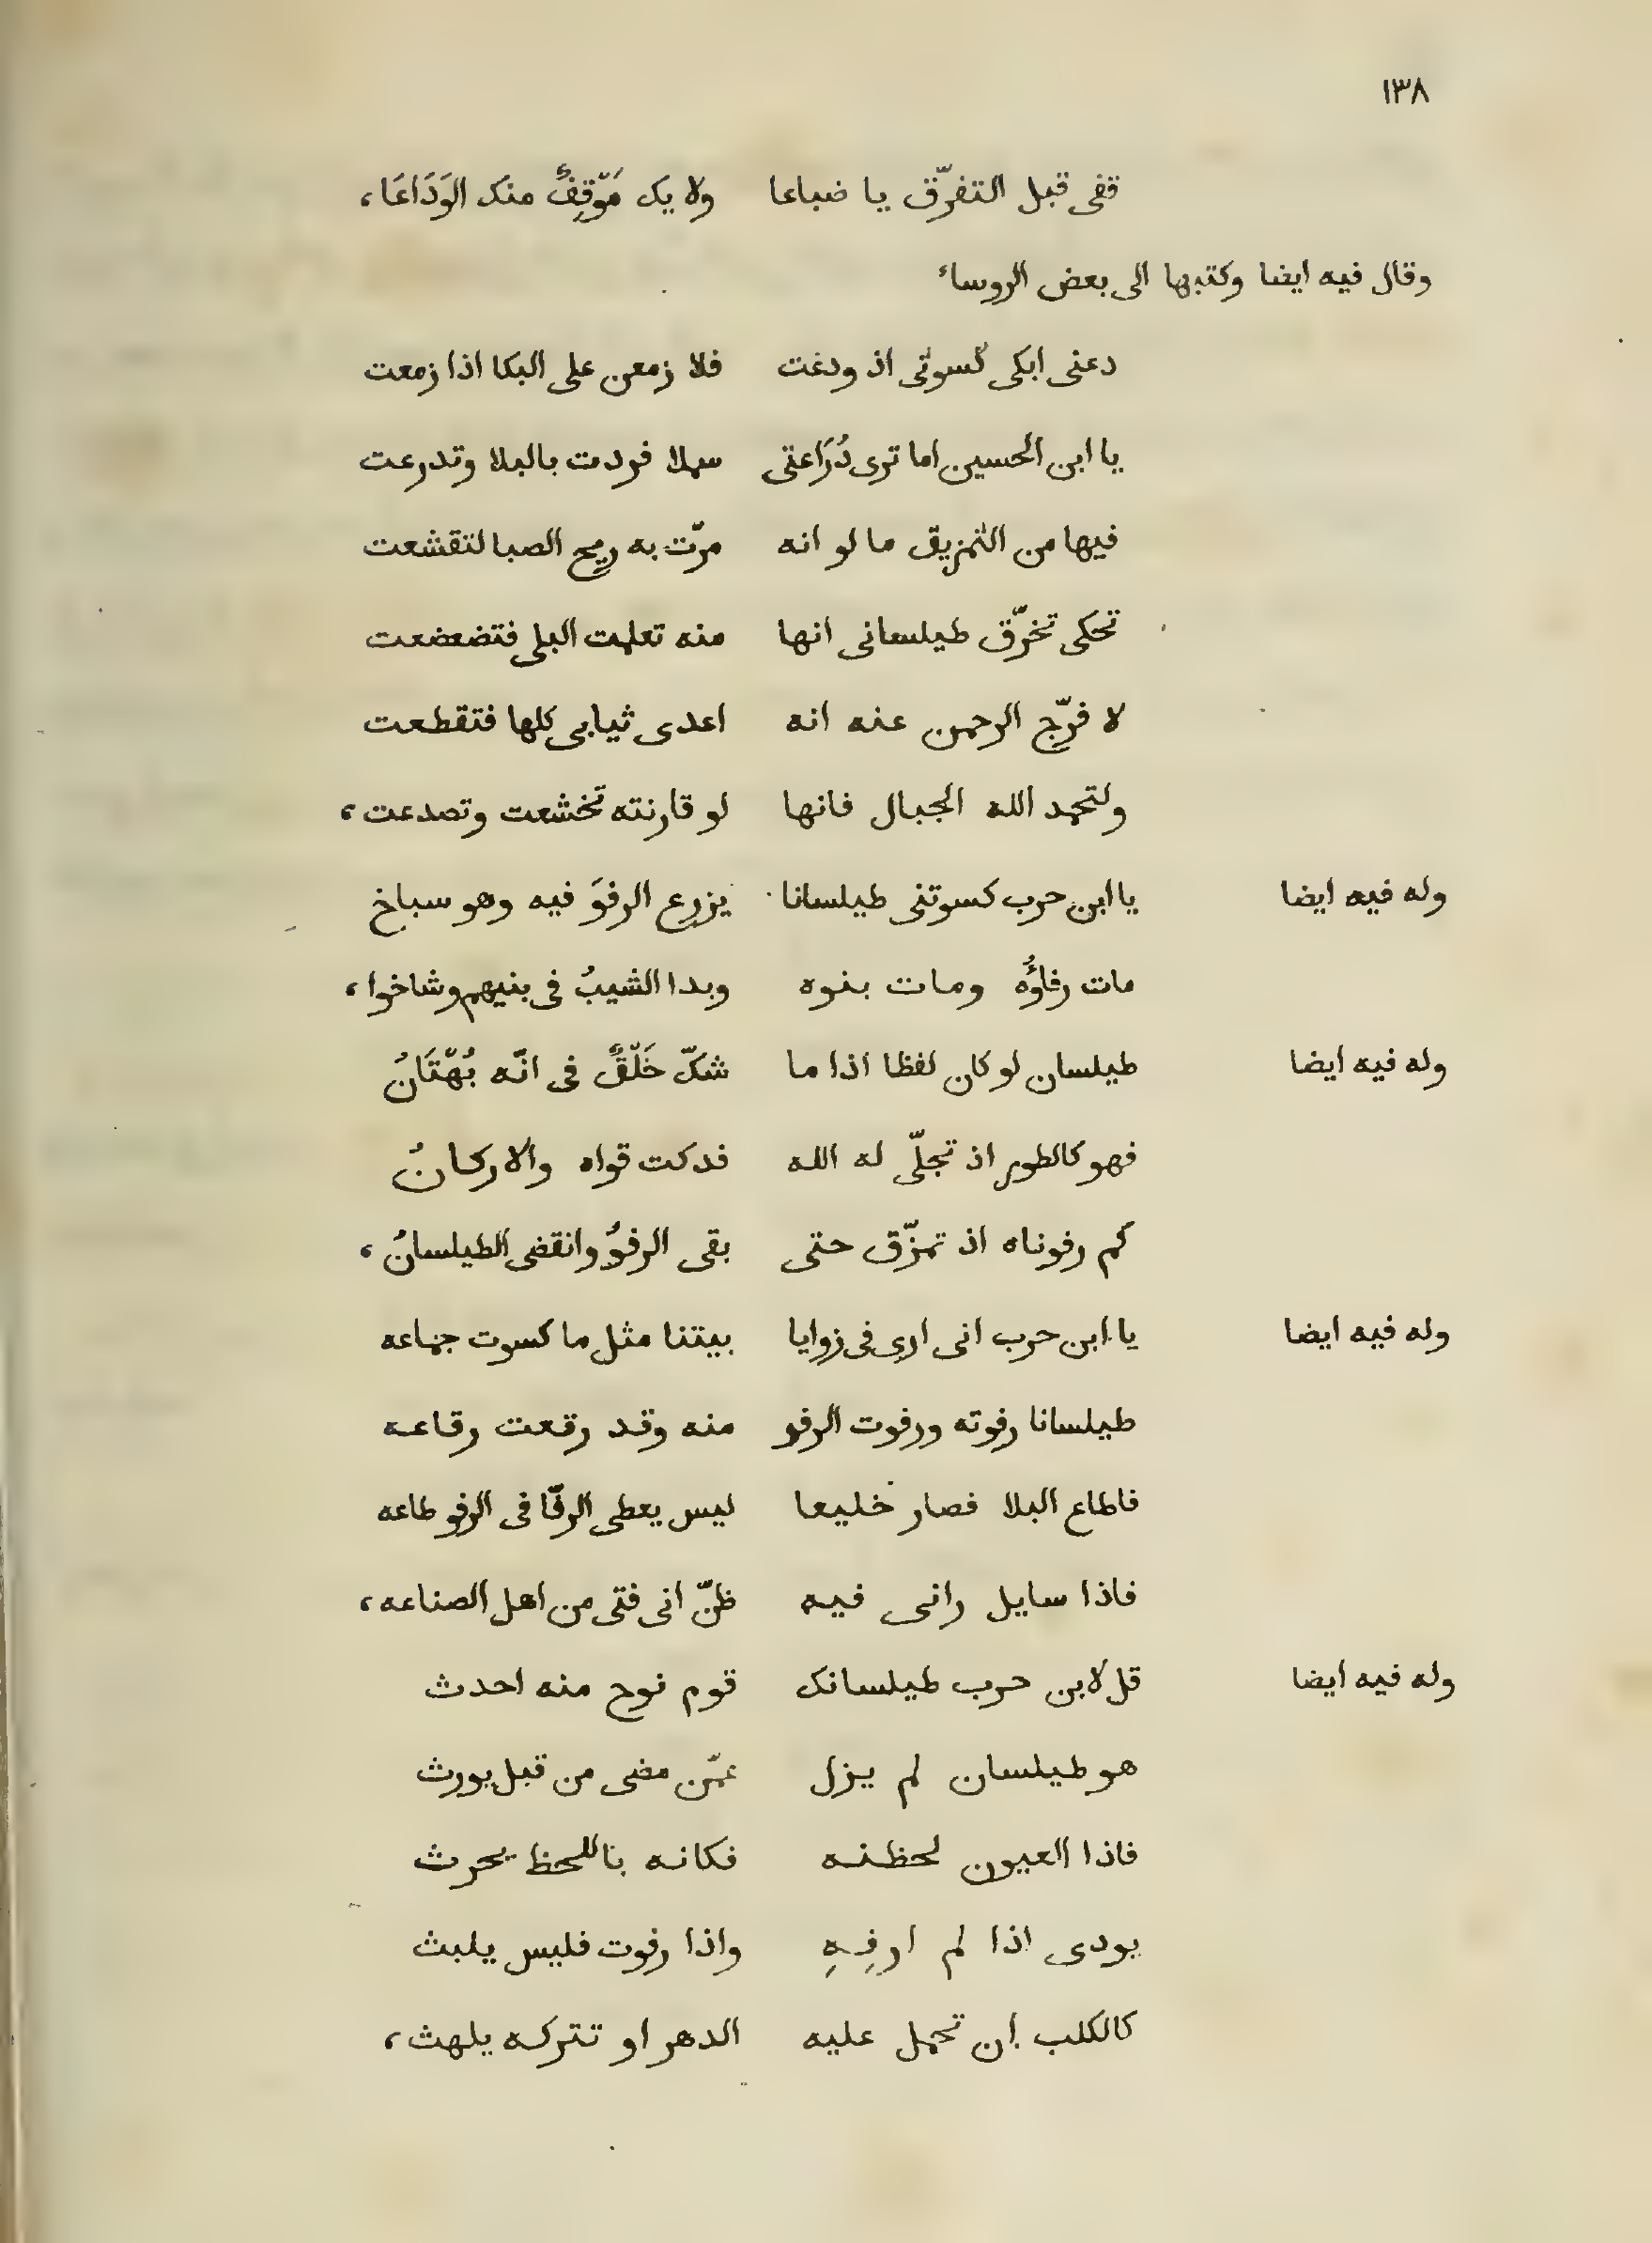 ١٣٨
قفى قبل التفرّق يا ضباعا ولا يك مَوْقِفٌ منك الوَدَاعَا،
وقال فيه ايضا وكتبها الى بعض الروساء
دعنى ابكى كسوتى اذ ودعت فلا زمعن على البكا اذا زمعت
يا ابن الحسين اما ترى دُرَاعتى سملا فردت بالبلا وتدرعت
فيها من التمزيق ما لو انه مرّت به ريح الصبا لتقشعت
تحكى تخرّق طيلسانى انها منه تعلمت البلى فتضعضعت
لا فرّج الرحمن عنه انه اعدى ثيابى كلها فتقطعت
ولتحمد الله الجبال فانها لو قارنته تخشعت وتصدعت،
وله فيه ايضا يا ابن حرب كسوتنى طيلسانا يزرع الرفوَ فيه وهو سباخ
مات رفاؤُه ومات بنوه وبدا الشيبُ فى بنيهم وشاخوا،
وله فيه ايضا طيلسان لو كان لفظا اذا ما شكّ خَلْقٌ فى انّه بُهْتَانُ
فهو كالطور اذ تجلّى له الله فدكت قواه والاركانُ
كم رفوناه اذ تمزّق حتى بقى الرفوُ وانقضى الطيلسانُ،
وله فيه ايضا يا ابن حرب انى ارى فى زوايا بيتنا مثل ما كسوت جماعه
طيلسانا رفوته ورفوت الرفو منه وقد رقعت رقاعه
فاطاع البلا فصار خليعا ليس يعطى الرفّا فى الرفو طاعه
فاذا سايل رانى فيه ظنّ انى فتى من اهل الصناعه،
وله فيه ايضا قل لابن حرب طيلسانك قوم نوح منه احدث
هو طيلسان لم يزل عمّن مضى من قبل يورث
فاذا العيون لحظنه فكانه باللحظ يحرث
يودى اذا لم ارفِهِ واذا رفوت فليس يلبث
كالكلب إن تحمل عليه الدهر او تتركه يلهث،